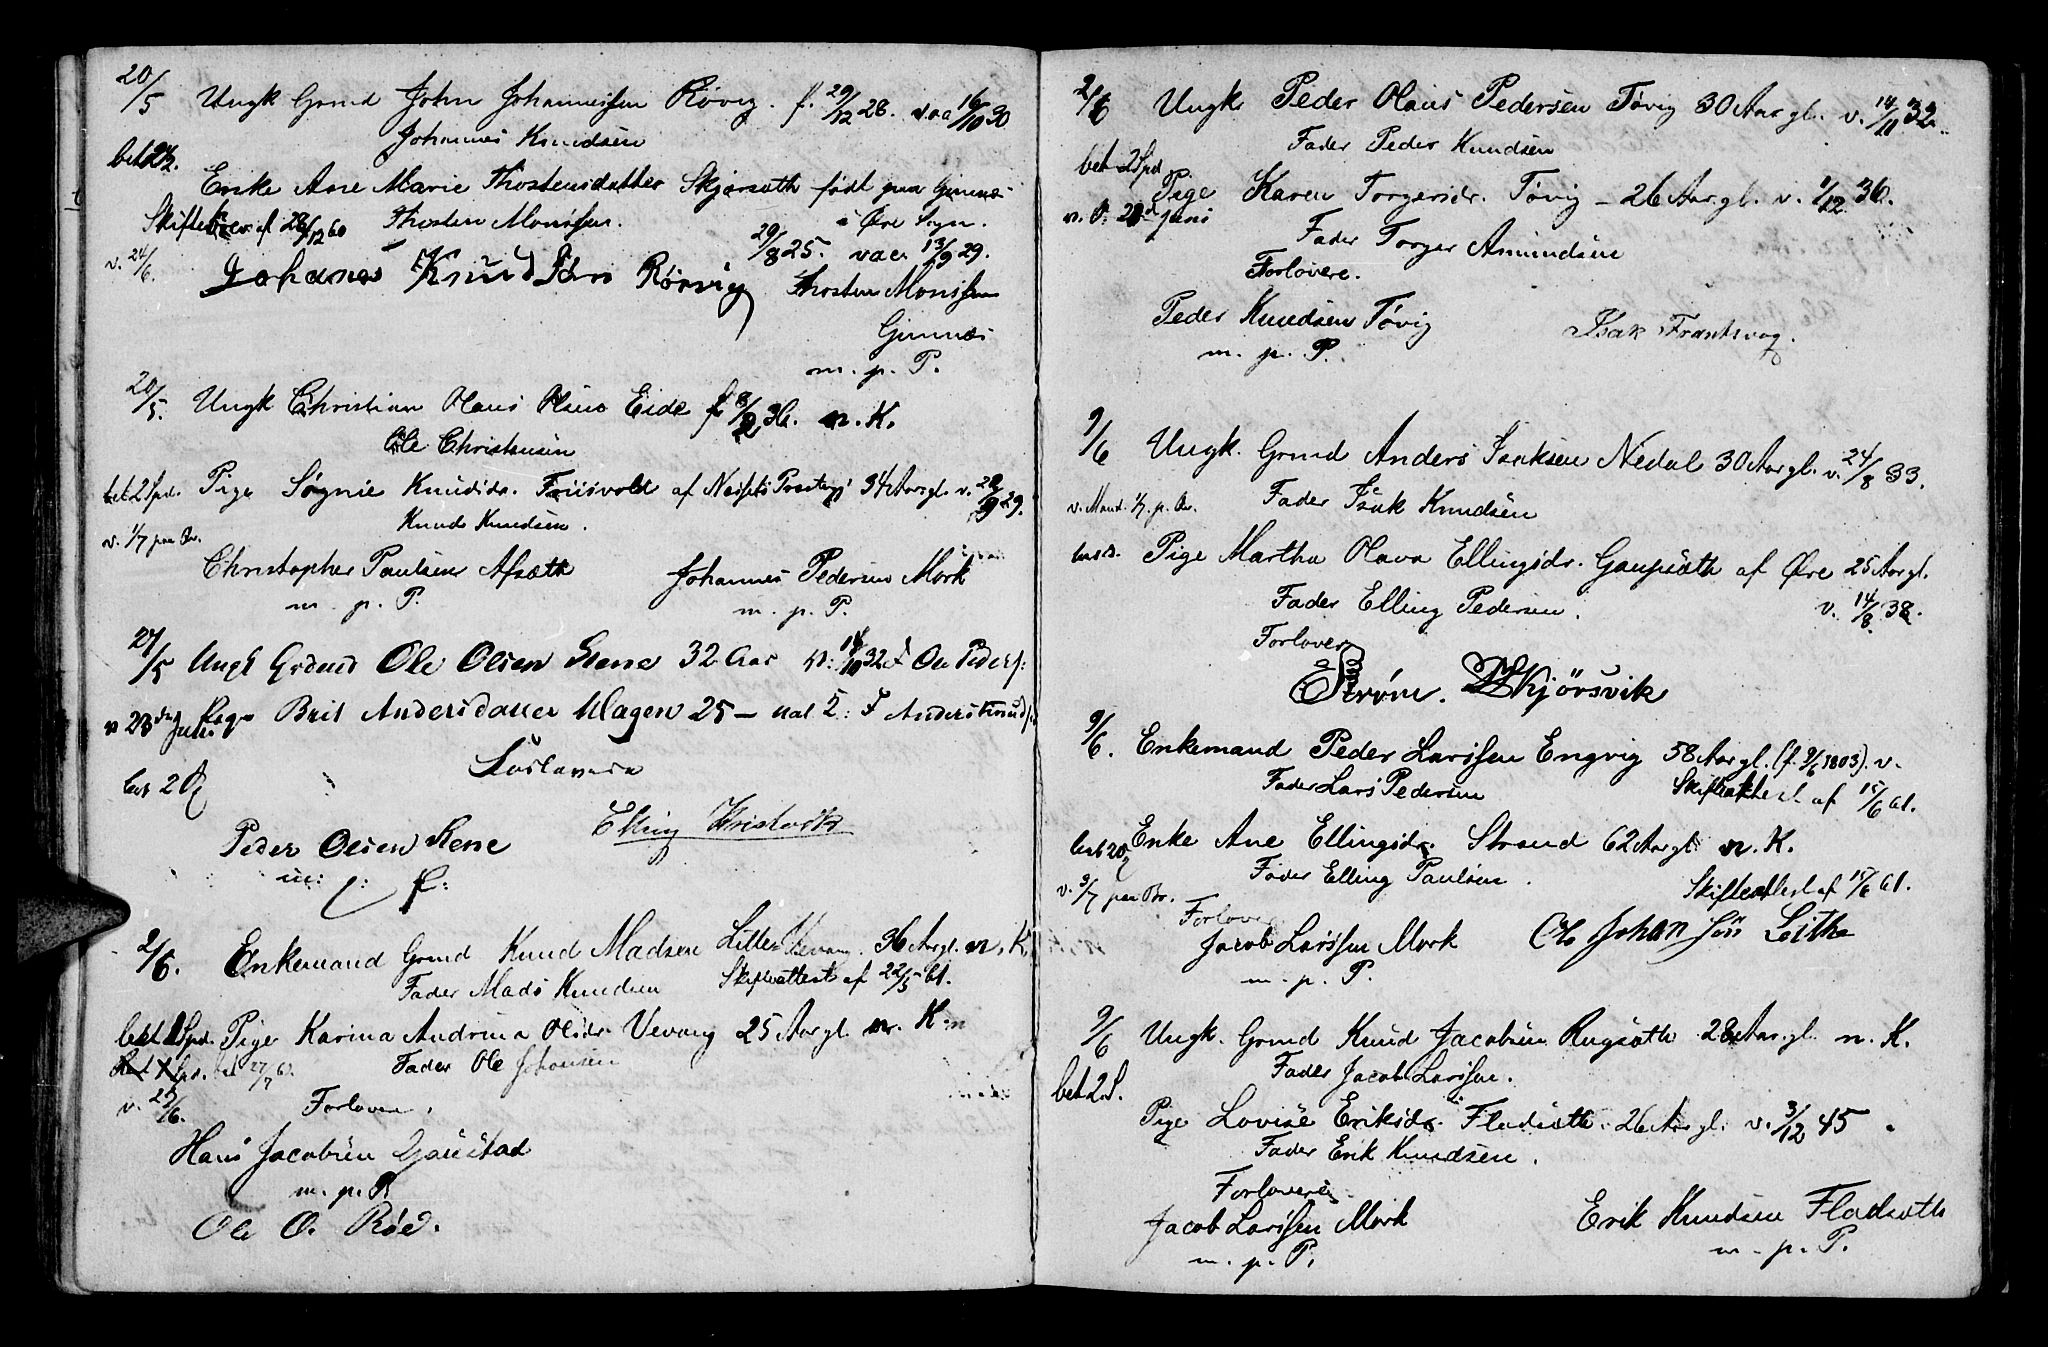 20/5 Ungk Grmd John Johannessen Røvig. f. 29/12 28. vac 16/10 30
Johannes Knudsen
bet 2
Enke Ane Marie Thostensdatter Skjørsæth født paa Gimnæs
Skiftebrev af 28/12 60 Thosten Monssen. i Øre Sogn.
v. 24/6. 29/8 25. vac. 13/9 29.
Johanes Knudsen Rørvig Thosten Monssen
Gimnæs
m. p. P.
20/5. Ungk Christian Olaus Olsen Eide f 8/2 36. n. K.
Ole Christensen
bet 2 Spd. Pige Søgnie Knudsdr. Friisvold af Nessets Prestegj 34 Aar gl. v. 29.
v. 1/7 paa Br. Knud Knudsen.
Christopher Paulsen Afsæth Johannes Pedersen Mork
m. p. P. m. p. P.
27/5 Ungk Grdmd Ole Olsen Stene 32 Aar v: 14/10 32 F Ole Peders:
v 23de Juni Pige Brit Andersdatter Wagen 25 – nat 2: F Anders Knuds:
Forlovere
bet 2
Elling Kristvik
Peder Olsen Stene
m: p: P:
2/6. Enkemand Grmd Knud Madsen Lille Vevang. 36 Aar gl. n. K.
Fader Mads Knudsen Skifteattest af 22/5 61.
bet 1 Spd. Pige Karina Andrina Olsdr Vevang 25 Aar gl. n. K.
27/7 61. Fader Ole Johansen
v. 23/6. Forlovere.
Hans Jacobsen Gaustad
m. p. P.
Ole O. Røed.
2/6 Ungk. Peder Olaus Pedersen Tøvig 30 Aar gl. v. 14/11 32.
Fader Peder Knudsen
bet 2 Spd
Pige Karen Torgersdr. Tøvig – 26 Aar gl. v. 1/12 36.
v. B. 23d Juni
Fader Torger Amundsen
Forlovere.
Peder Knudsen Tøvig Isak Frantsvog.
m. p. P.
9/6 Ungk. Grmd Anders Isaksen Nedal 30 Aar gl. v. 24/8 33.
v. Mand. 1/7. p. Br. Fader Isak Knudsen
Pige Martha Olava Ellingsdr. Gaupsæth af Øre 25 Aar gl.
Fader Elling Pedersen. v. 14/8. 38.
Forlovere
Strøm. Skjörsvik
9/6. Enkemand Peder Larssen Engvig 58 Aar gl. (f. 9/6 1803). v.
Fader Lars Pedersen Skifteattest af 15/6 61.
Enke Ane Ellingsdr. Strand 62 Aar gl. n. K.
bet 2
v. 3/7 paa Br. Fader Elling Paulsen. Skifteattest af 15/6 61.
Forlover
Jacob Larssen Mork Ole Johan sön Leithe
m. p. P.
9/6 Ungk. Grmd Knud Jacobsen Rugsæth 28 Aar gl. n. K.
Fader Jacob Larssen.
bet 2 S.
Pige Lovise Eriksdr. Fladsæth. 26 Aar gl. v. 3/12 45.
Fader Erik Knudsen.
Forlovere
Jacob Larssen Mork Erik Knudsen Fladsæth
m. p. P. m. p. P.